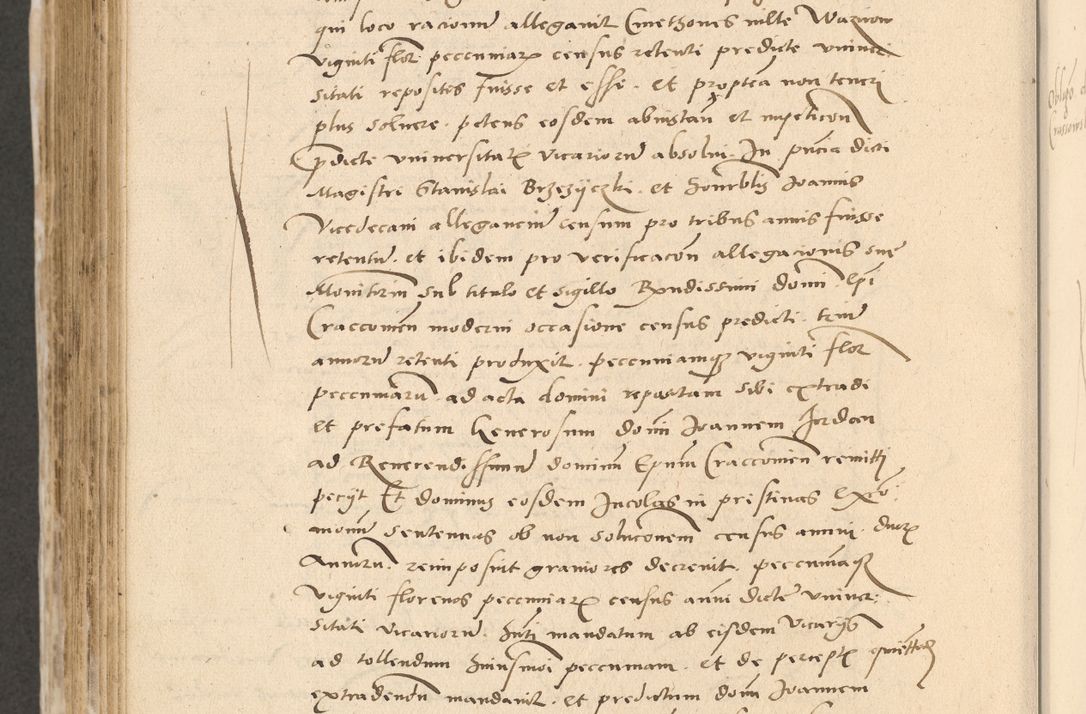 qui loco racionum allegavit Cmethones ville Warzow
viginti flor pecuniarz census retenti predicte univer
sitati repositos fuisse et esse. et propterea non teneri
plus solvere. petens eosdem ab instan et impeticon
pdicte universitatz vicariorum absolvi. In pñcia dicti
Magistri Stanislai Brzezyczki. et honrblis Joannis
Vicedecani allegancium censum pro tribus annis fuisse
retentum. et ibidem pro verificacon allegacionis sue
Monitorium sub titulo et sigillo Rvndissimi domi. Epi
Craccovien moderni occasione census predicti. trium
annorum retenti produxit. pecuniamqz viginti flor
pecuniarum. ad acta domini repositam sibi extradi
et prefatum Generosum domi Joannem Jordan
ad Reverendissimum dominum Epum Craccovien remitti
peciit Et dominus eosdem Incolas in pristinas exco
monum sentencias ob non solucionem census anni. duorz
Annorum. reimposuit graviores decrevit. pecuniamqz
Viginti florenos pecuniarz census anni dicte univer
sitati vicariorum. Juxti mandatum ab eisdem Vicariis
ad tollendum huiusmoi pecuniam. et de perceptz quiettadz
extradendum mandavit. et predictum domi Joannem
Obligo